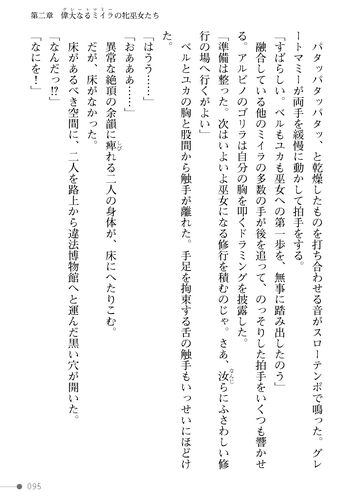 第二章 偉大なるミイラの牝巫女たち
グレートマミー
パタッパタッパタッ、と乾燥したものを打ち合わせる音がスローテンポで鳴った。グレ
ートマミーが両手を緩慢に動かして拍手をする。
「すばらしい。ベルもユカも巫女への第一歩を、無事に踏み出したのう」
融合している他のミイラの多数の手が後を追って、のっそりした拍手をいくつも響かせ
る。アルビノのゴリラは自分の胸を叩くドラミングを披露した。
「準備は整った。次はいよいよ巫女になる修行を積むのじゃ。さあ、汝らにふさわしい修
なんじ
行の場へ行くがよい」
ベルとユカの胸と股間から触手が離れた。手足を拘束する舌の触手もいっせいにほどけ
た。
「はうう……」
「おああああ……」
異常な絶頂の余韻に痺れる二人の身体が、床にへたりこむ。
しび
だが、床がなかった。
床があるべき空間に、二人を路上から違法博物館へと運んだ黒い穴が開いた。
「なんだっ!?」
「なにを！」
095